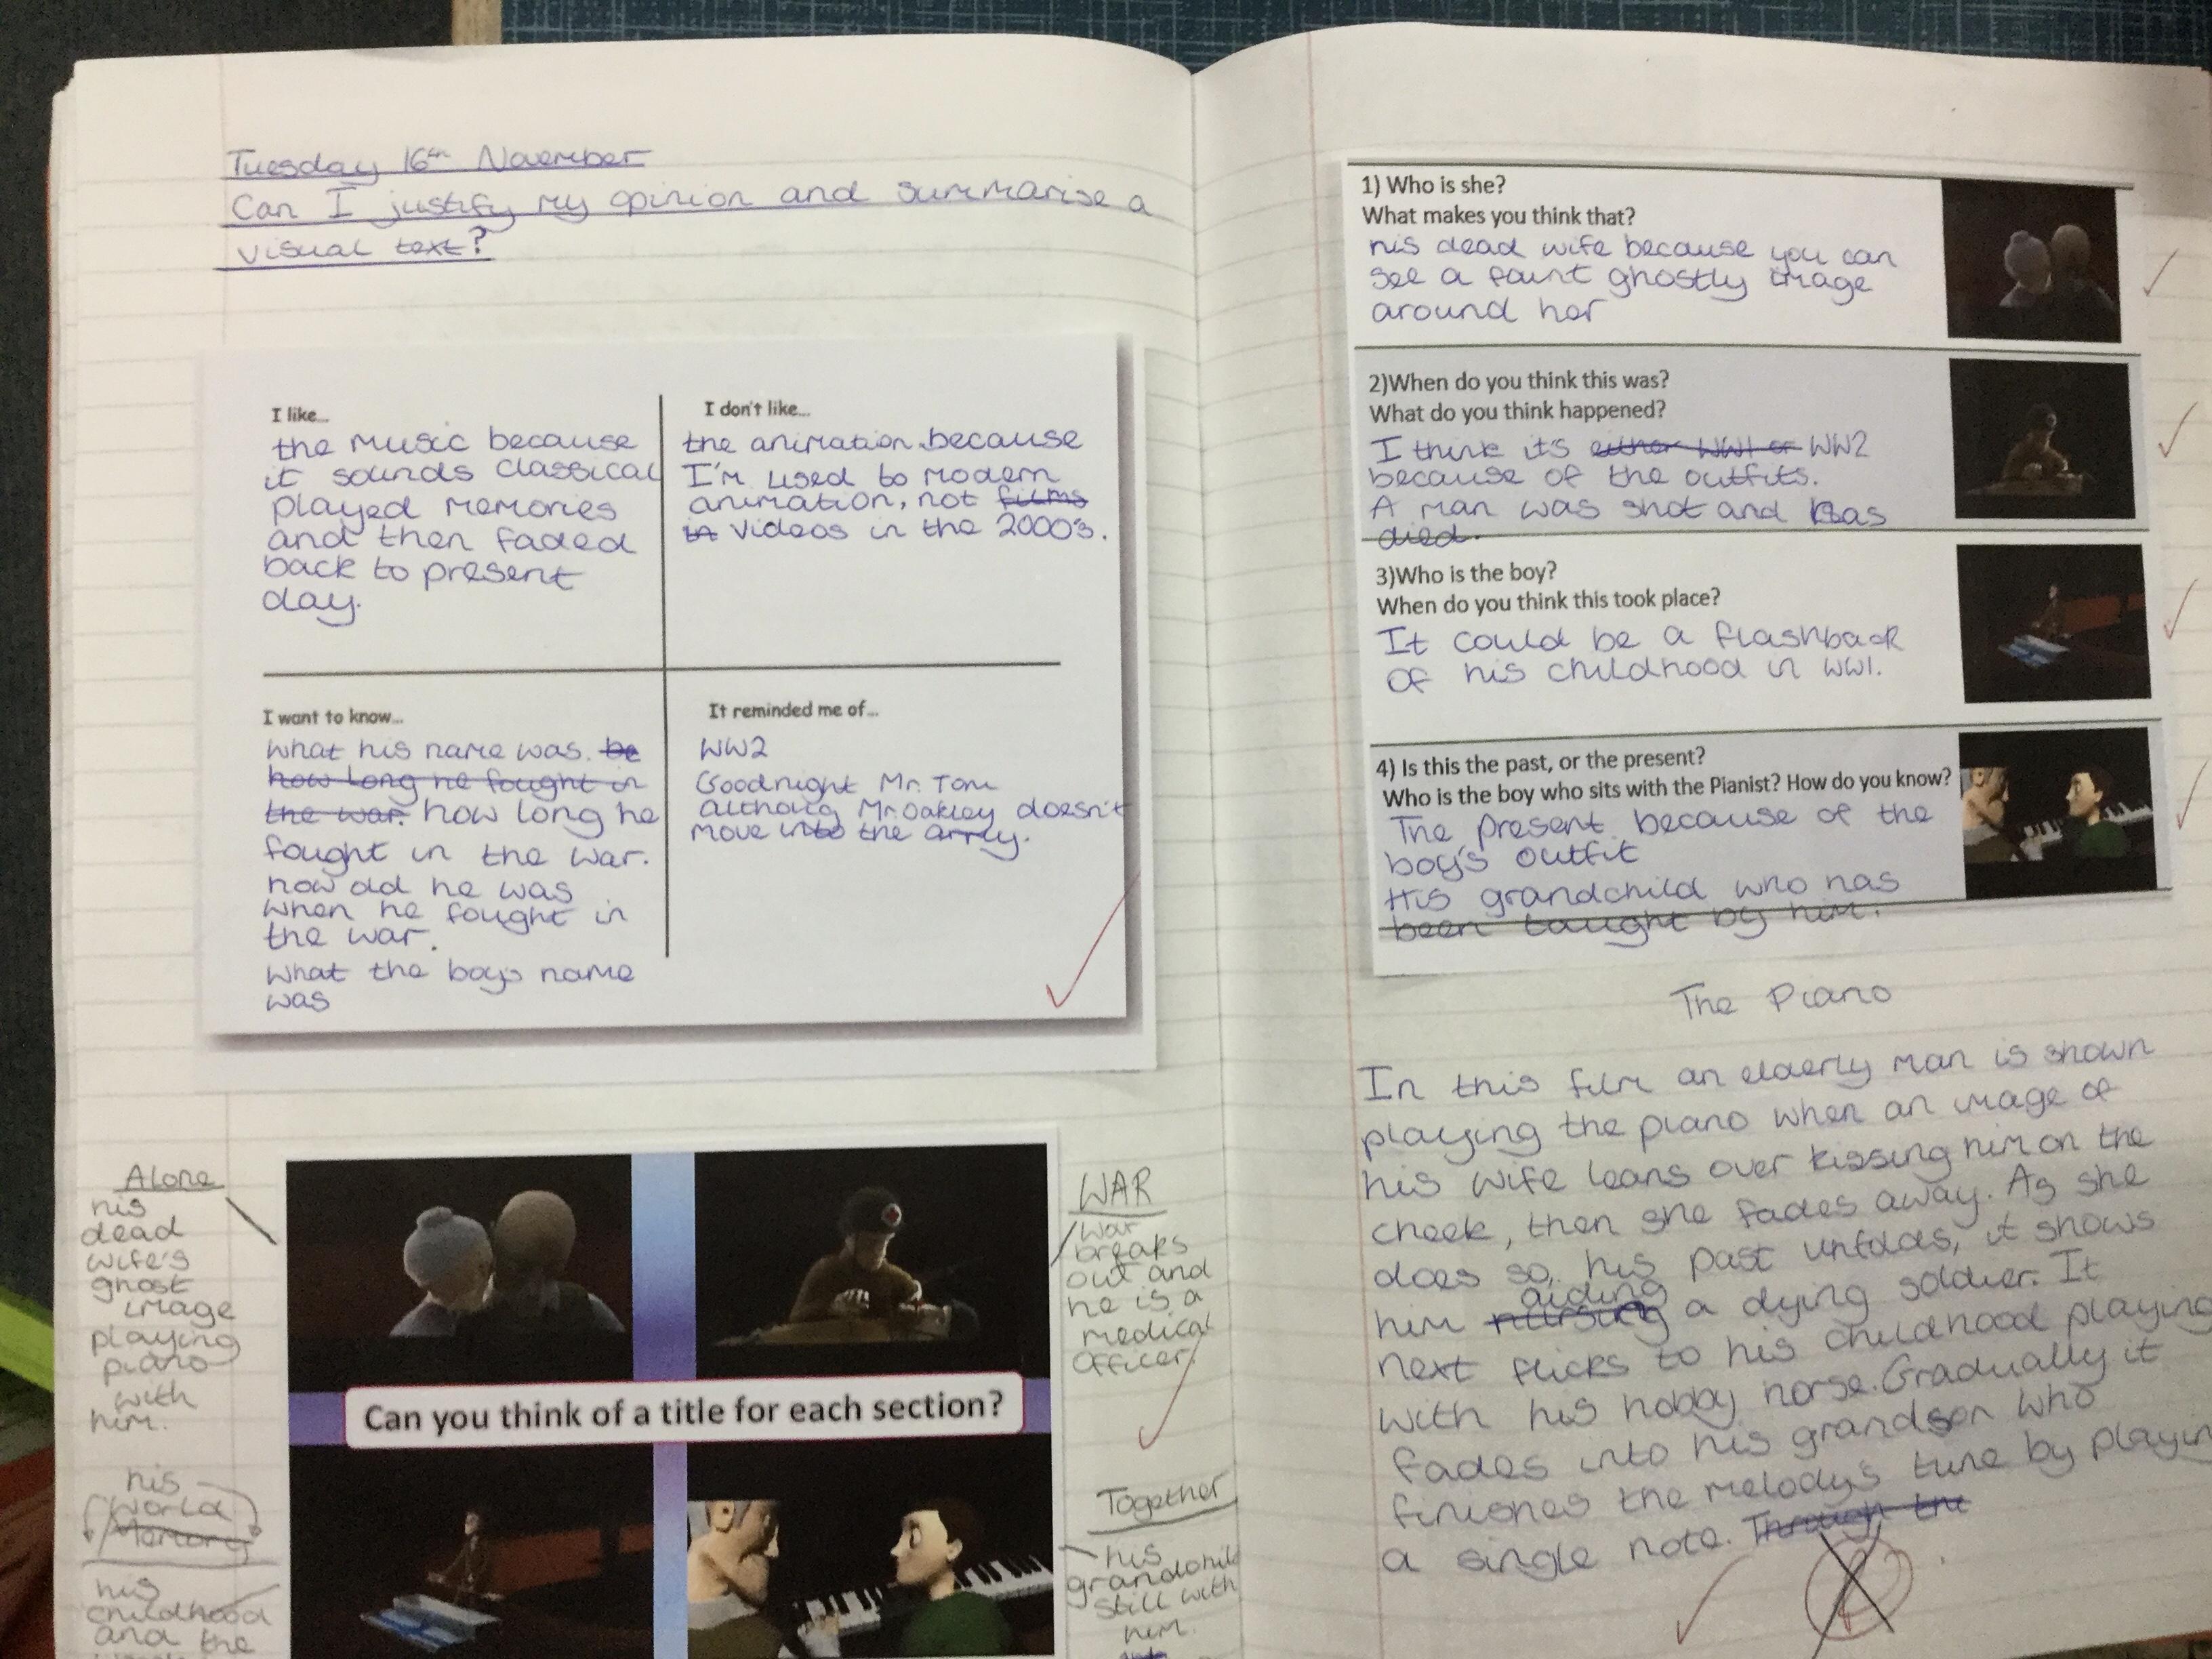 Tuesday 16th November
Can I justify my opinion and summarise a
visual text?
I like...
the music because
it sounds classical
played memories
and then faded
back to present
day.
I don't like...
the animation because
I'm used to modern
animation, not films
in videos in the 2000's.
I want to know...
what his name was. be
how long he fought in
the war. how long he
fought in the war.
how old he was
when he fought in
the war.
what the boys name
was
It reminded me of...
WW2
Goodnight Mr. Tom
althoug Mr. Oakley doesn't
move into the army.
Alone
his
dead
wife's
ghost
image
playing
piano
with
him.
his
World
Memory
his
childhood
and the
Can you think of a title for each section?
WAR
War
breaks
out and
he is a
medical
officer.
Together
his
grandchild
still with
him.
1) Who is she?
What makes you think that?
his dead wife because you can
see a faint ghostly image
around her
2)When do you think this was?
What do you think happened?
I think it's either WW1 or WW2
because of the outfits.
A man was shot and has
died.
3)Who is the boy?
When do you think this took place?
It could be a flashback
of his childhood in WW1.
4) Is this the past, or the present?
Who is the boy who sits with the Pianist? How do you know?
The present because of the
boy's outfit
His grandchild who has
been taught by him.
The Piano
In this film an elderly man is shown
playing the piano when an image of
his wife leans over kissing him on the
cheek, then she fades away. As she
does so, his past unfolds, it shows
aiding
him nursing a dying soldier. It
next flicks to his childhood playing
with his hobby horse. Gradually it
fades into his grandson who
finishes the melody's tune by playin
a single note. Through the